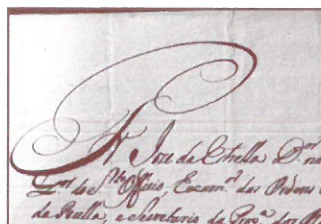 Fr. Jose da Estrella D.or na
do S.to Officio, Exam.or das Ordens
da Sevilla, e Secretario da Prov.a dos